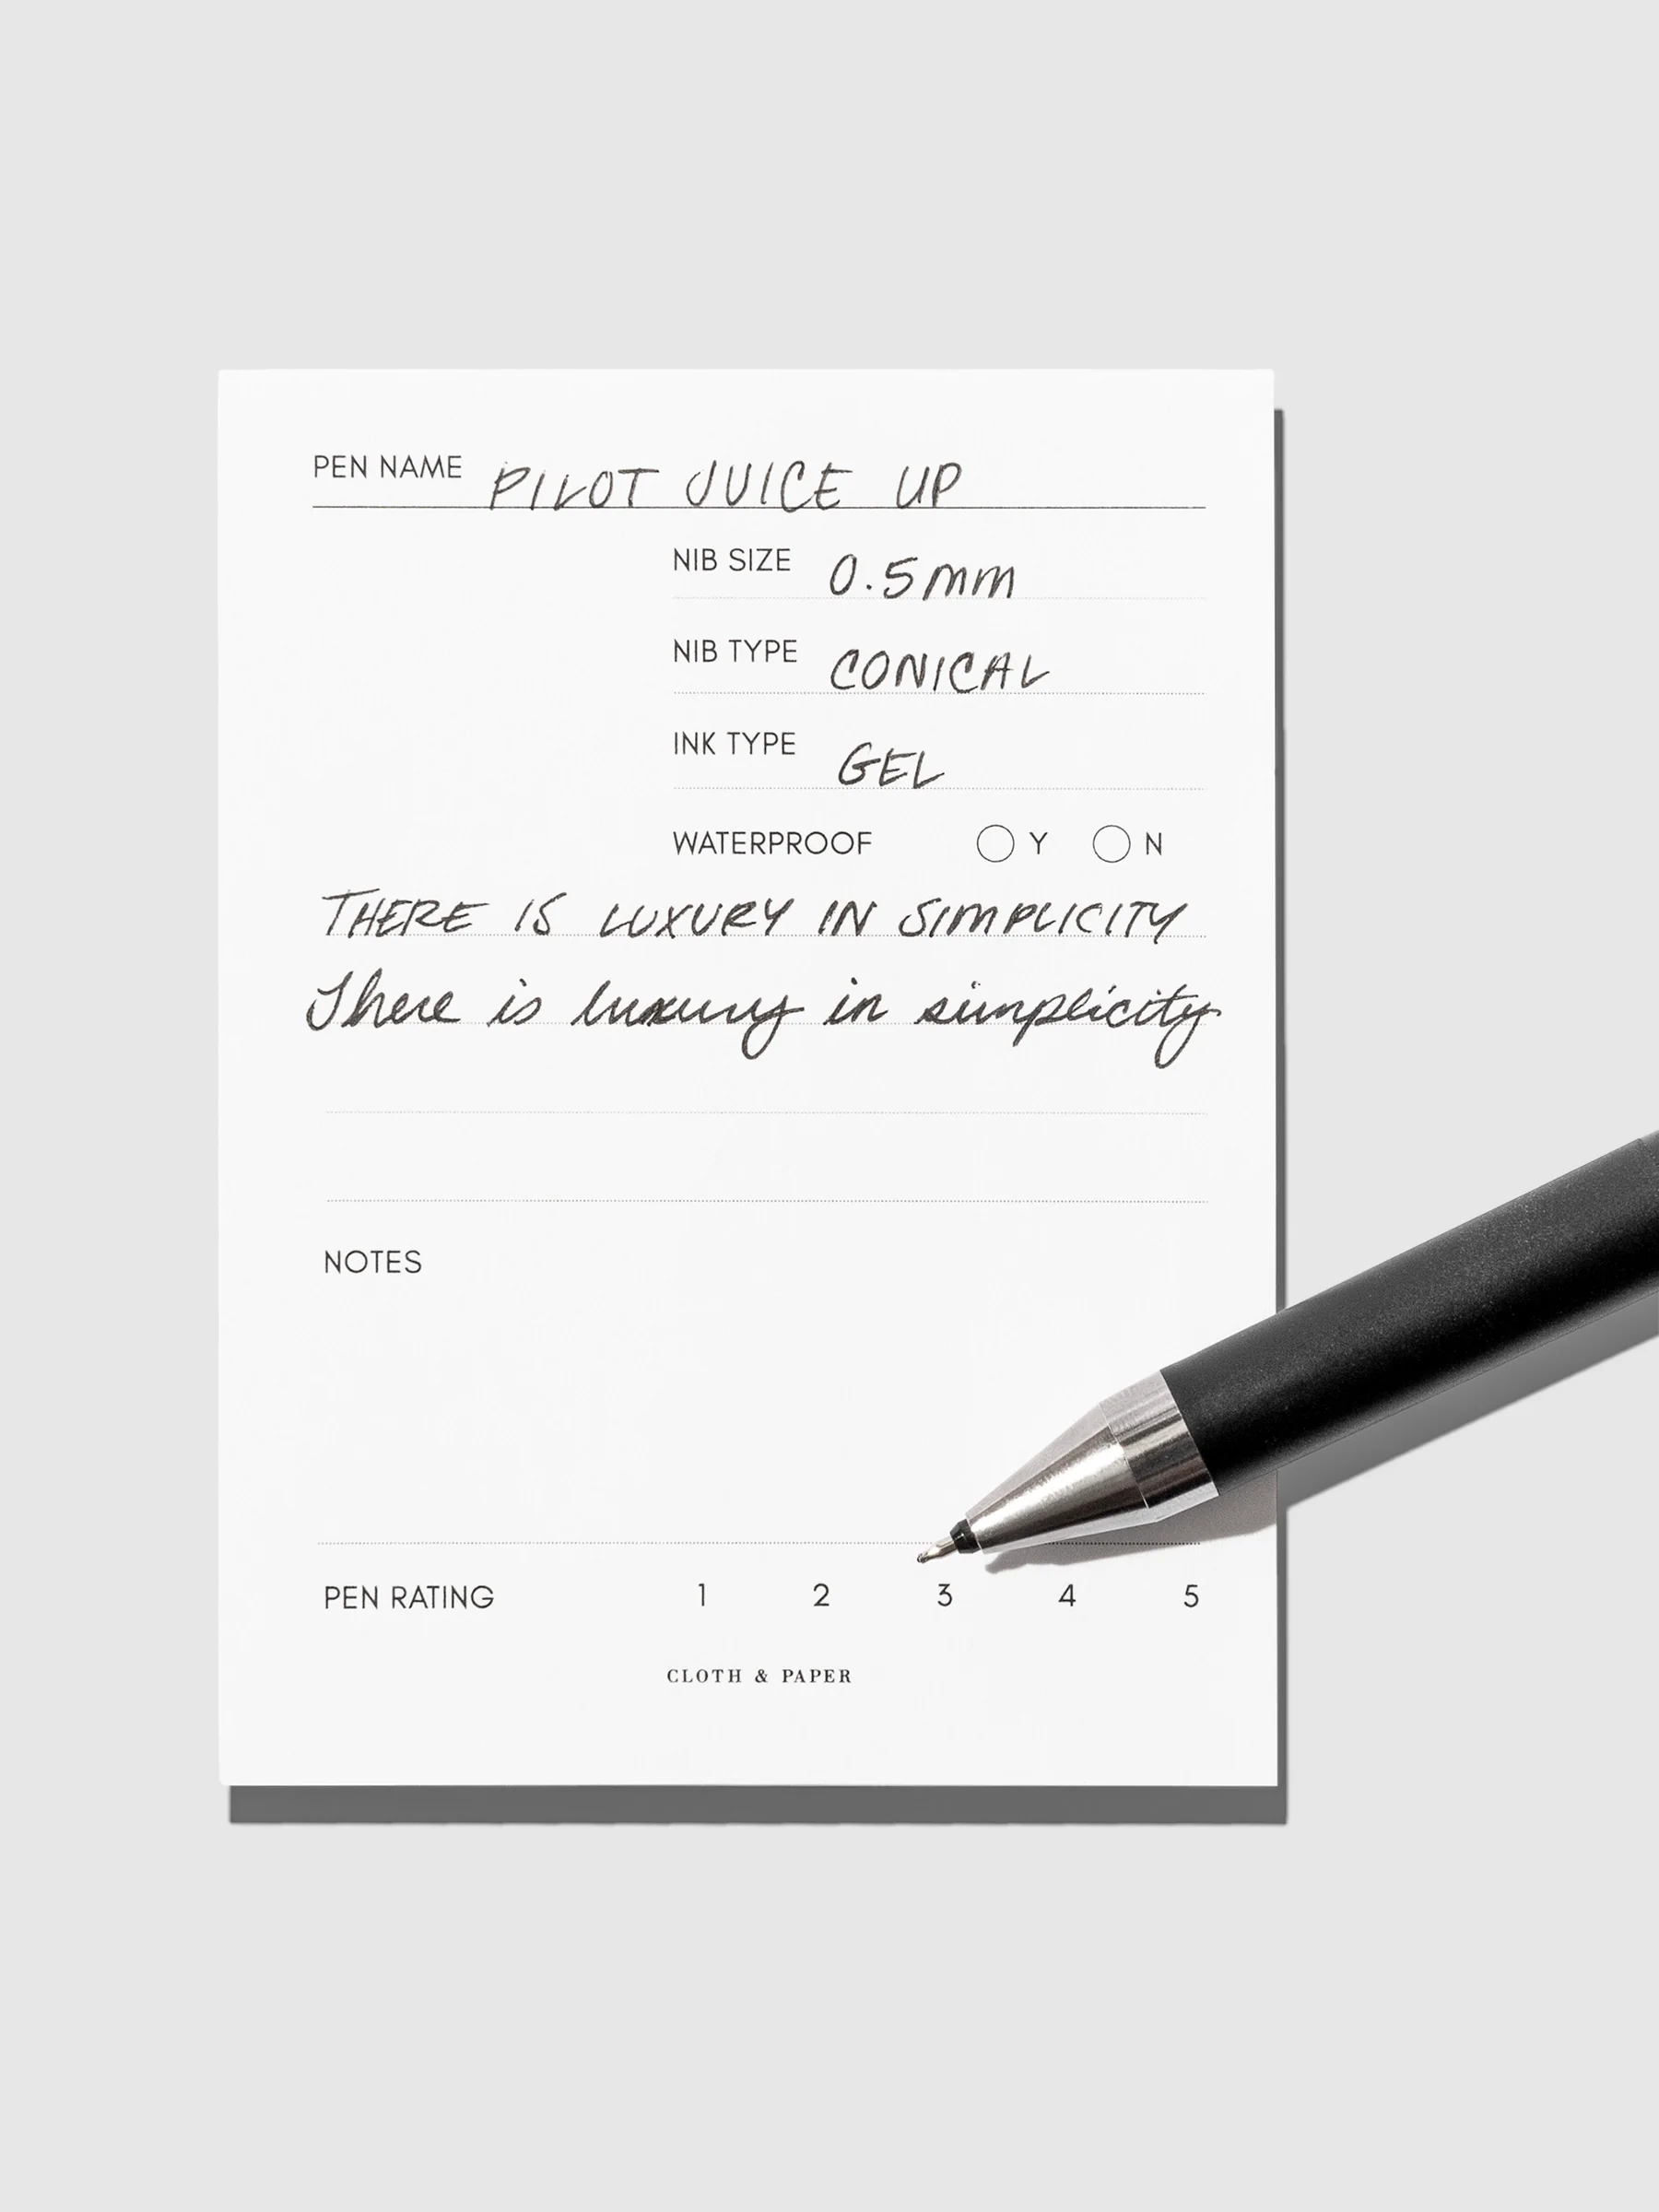 PEN NAME PILOT JUICE UP
NIB SIZE 0.5mm
NIB TYPE CONICAL
INK TYPE GEL
WATERPROOF Y N
THERE IS LUXURY IN SIMPLICITY
There is luxury in simplicity
NOTES
PEN RATING 1 2 3 4 5
CLOTH & PAPER